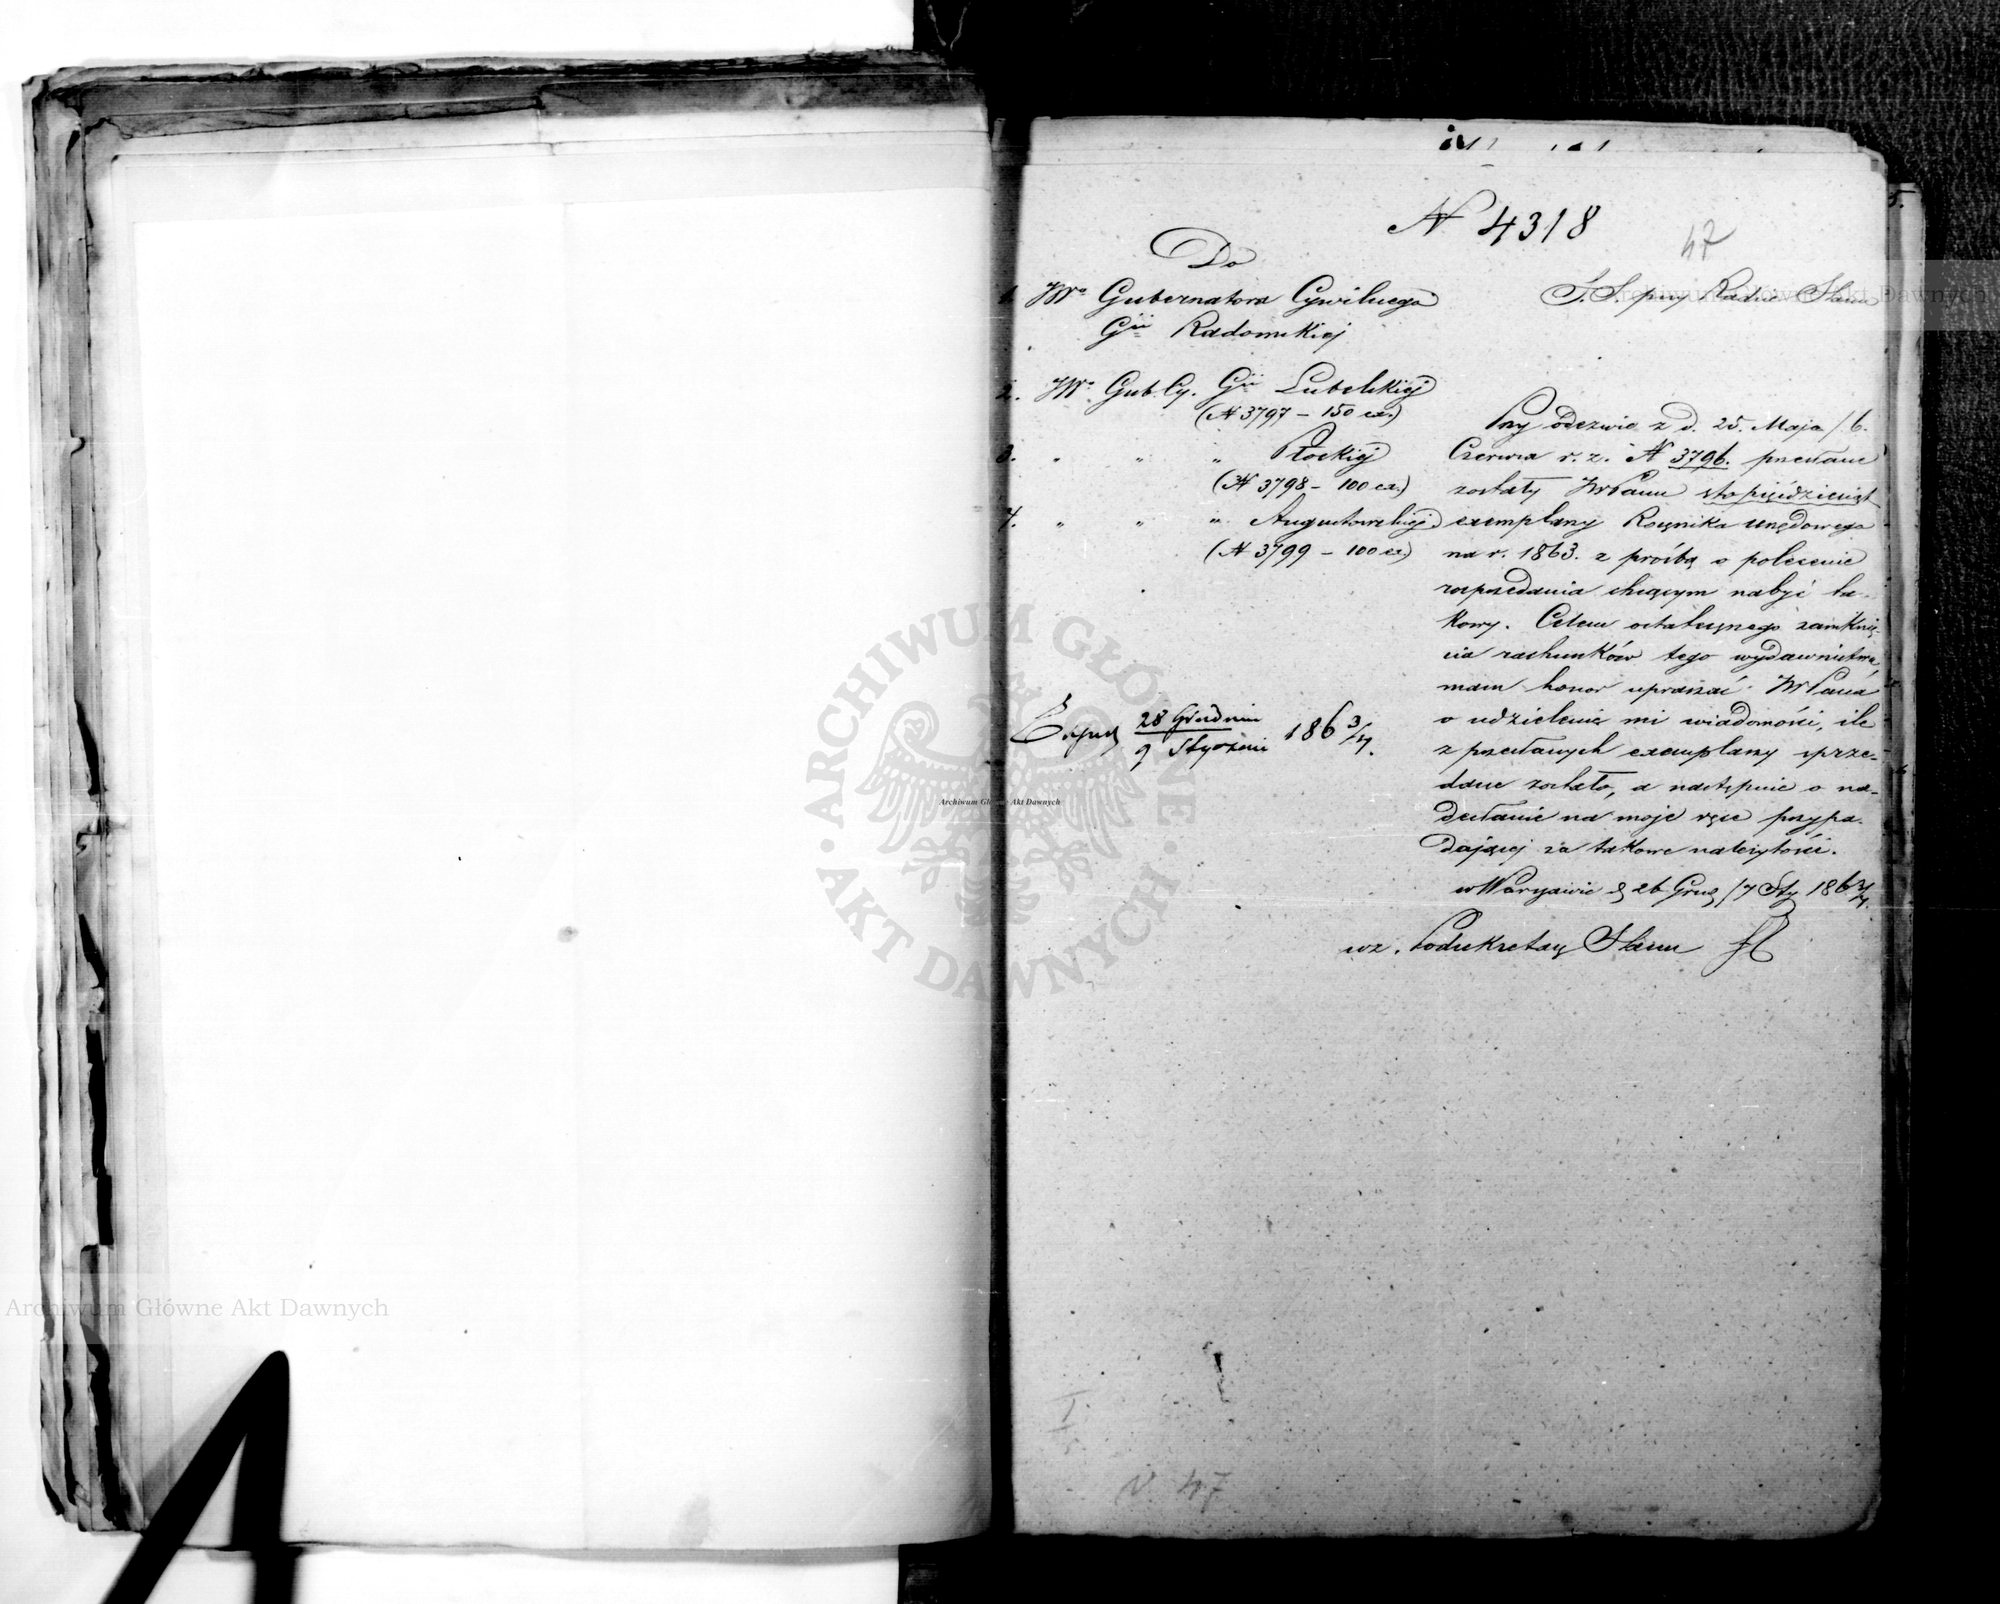 N 4318
47
Do
1. JW° Gubernatora Cywilnego
Gii Radomskiej
S. S. przy Radzie Stanu
2. JW° Gub. Cy. Gii Lubelskiej
(N 3797 – 150 ex.)
3. " " " Płockiej
(N 3798 – 100 ex.)
4. " " " Augustowskiej
(N 3799 – 100 ex.)
28 Grudnia
9 Stycznia 186 3/4.
Przy odezwie z d. 25. Maja / 6.
Czerwca r. z. N 3796. przesłane
zostały JWPanu sto pięćdziesiąt
exemplarzy Rocznika urzędowego
na r. 1863. z prośbą o polecenie
rozprzedania chcącym nabyć ta-
kowy. Celem ostatecznego zamknię-
cia rachunków tego wydawnictwa,
mam honor upraszać JWPana
o udzielenie mi wiadomości, ile
z przesłanych exemplarzy sprze-
dane zostało, a następnie o na-
desłanie na moje ręce przypa-
dającej za takowe należytości.
w Warszawie d. 26 Grud / 7 Sty 186 3/4.
wz. Podsekretarz Stanu
47
Archiwum Główne Akt Dawnych
Archiwum Główne Akt Dawnych
Archiwum Główne Akt Dawnych
ARCHIWUM GŁÓWNE
AKT DAWNYCH